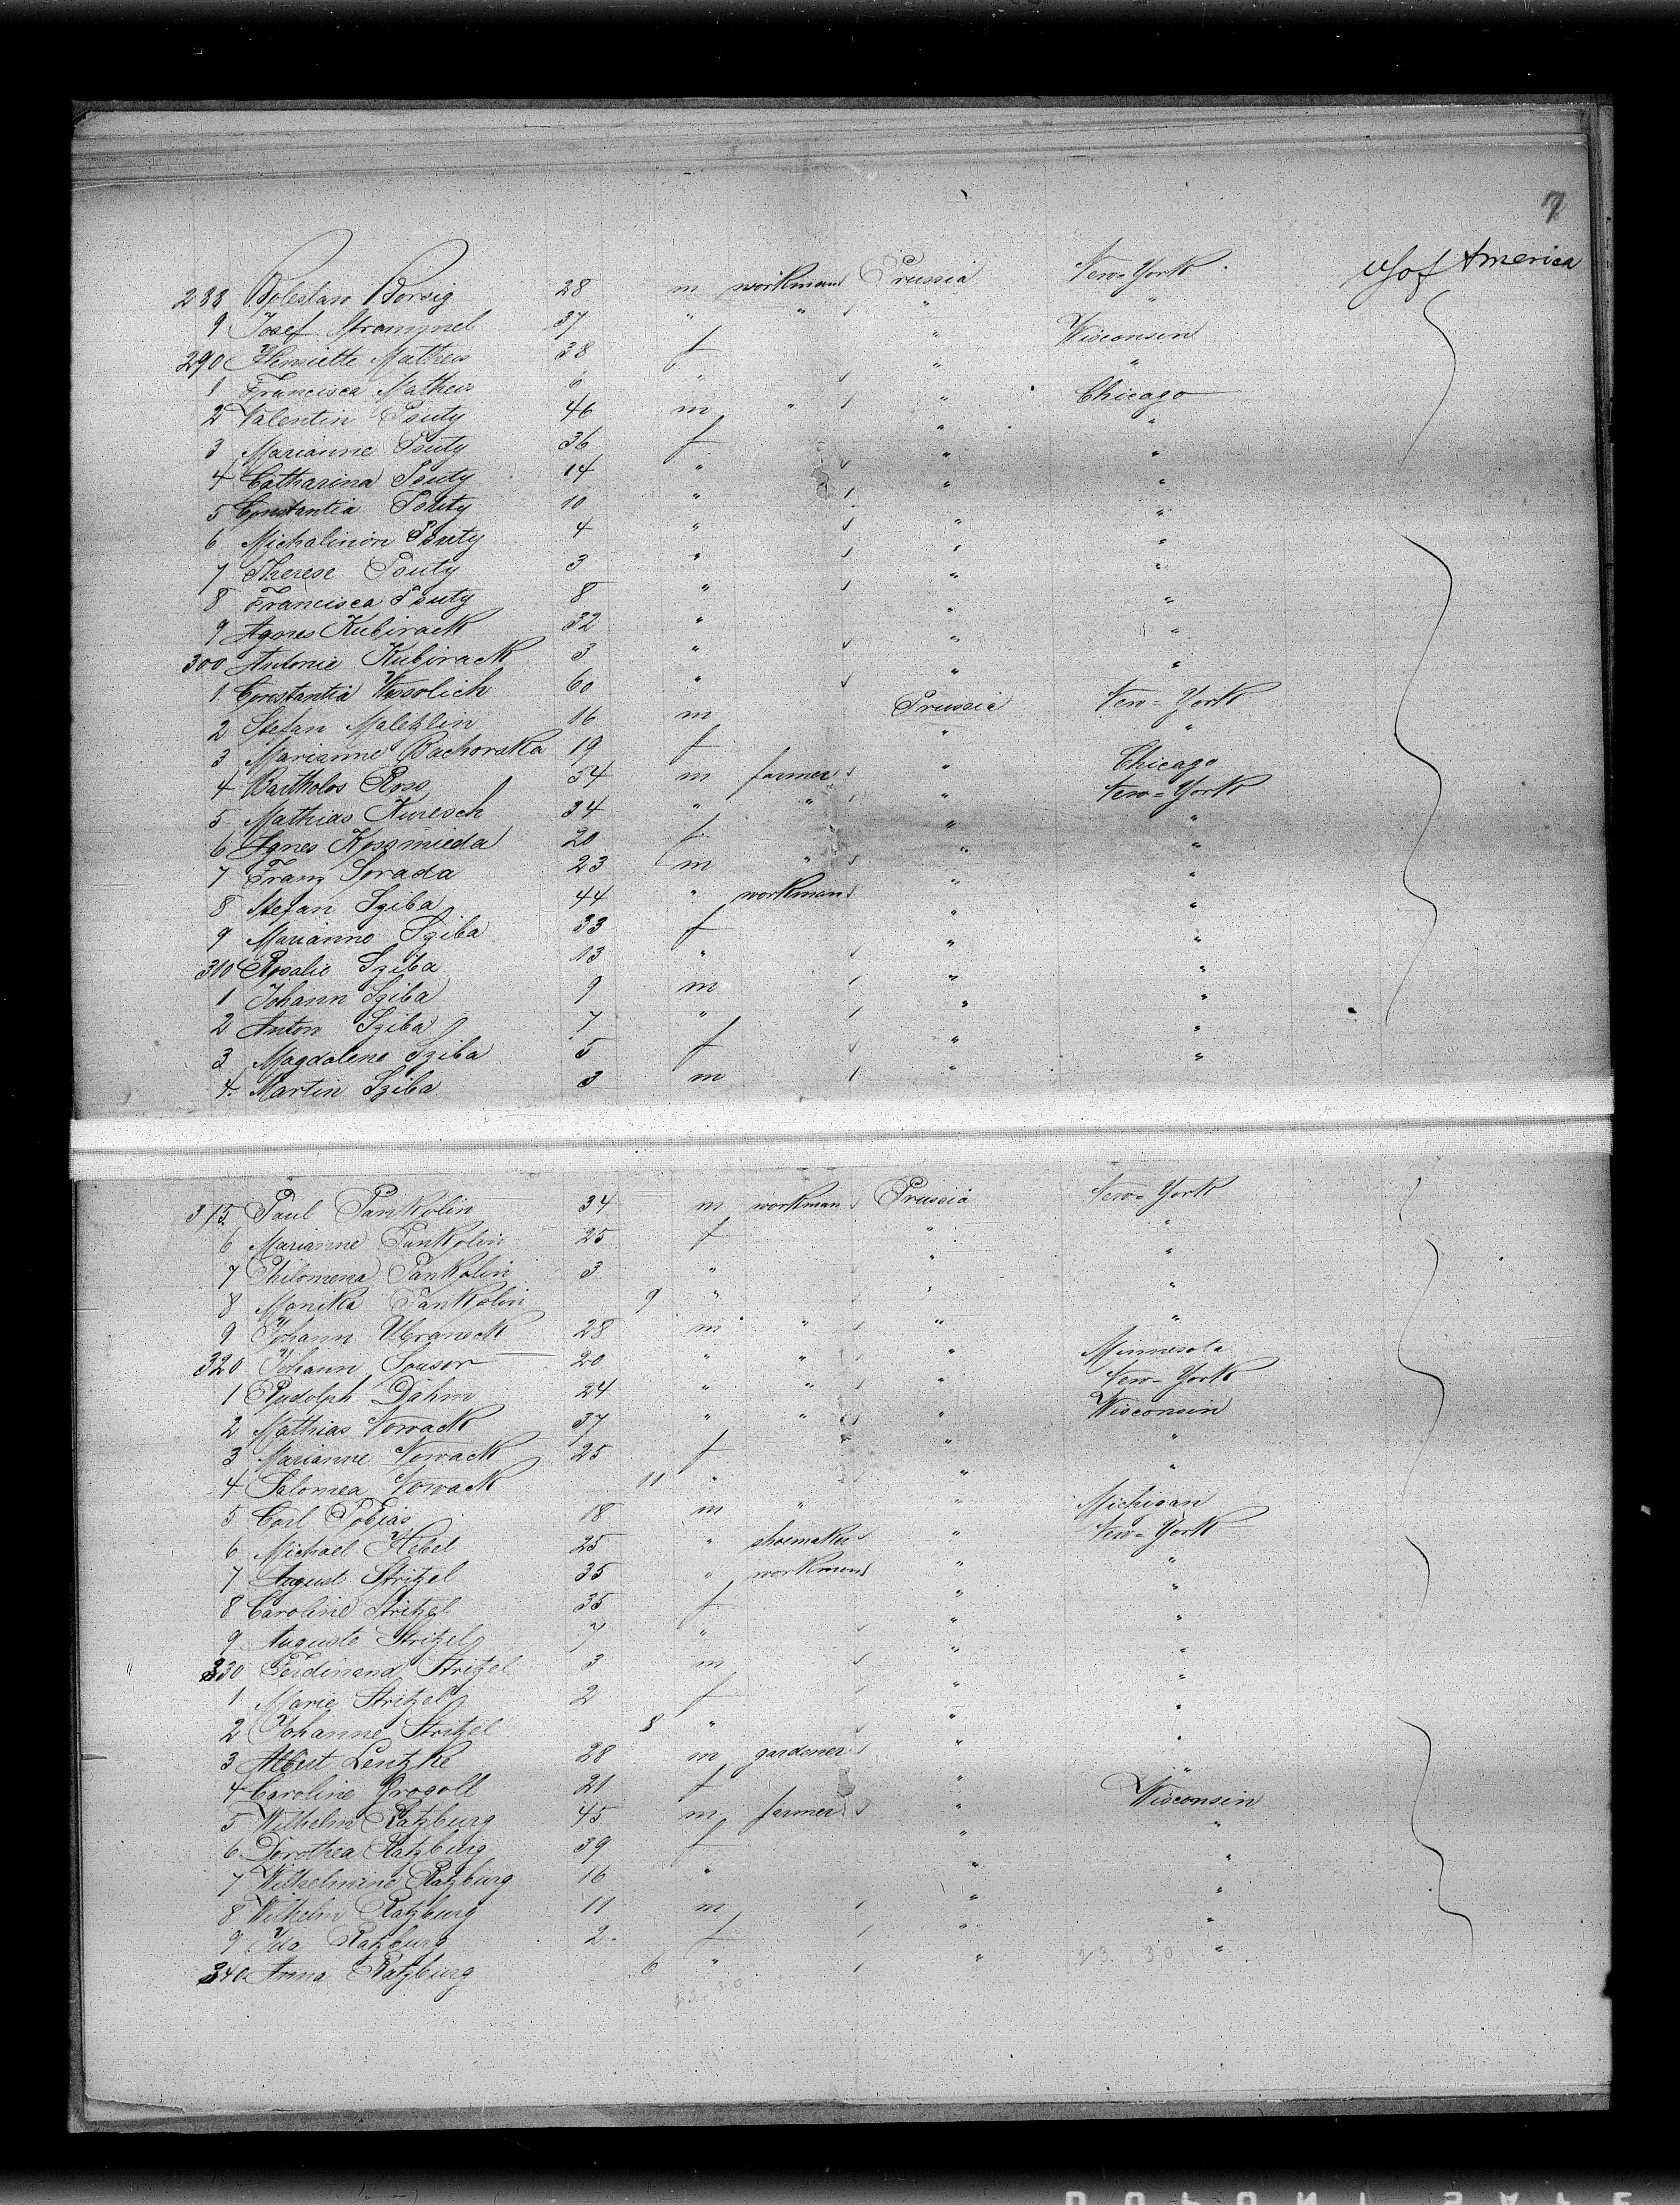 7
U S of America
288 Boleslaw Borsig 28 m workman Prussia New-York
9 Josef Strammel 37 " " " "
290 Henriette Matheus 38 f " Wisconsin
1 Francisca Matheus 6 " " "
2 Valentin Psuty 46 m " " Chicago
3 Marianne Psuty 36 f " "
4 Catharina Psuty 14 " " "
5 Constantia Psuty 10 " " "
6 Michalinon Psuty 4 " " "
7 Therese Psuty 3 " " "
8 Francisca Psuty 8 " " "
9 Agnes Kubirack 32 " " "
300 Antonie Kubirack 3 " " "
1 Constantia Wesolich 60 " " "
2 Stefan Maletzlin 16 m Prussia New-York
3 Marianne Bachorska 19 f " "
4 Bartholos Ross 54 m farmer " Chicago
5 Mathias Kuresch 34 " " " New-York
6 Agnes Kossmieda 20 f " "
7 Franz Sorada 23 m " " "
8 Stefan Sziba 44 " workman " "
9 Marianne Sziba 33 f " "
310 Rosalie Sziba 13 " " "
1 Johann Sziba 9 m " "
2 Anton Sziba 7 " " "
3 Magdalene Sziba 5 f " "
4 Martin Sziba 3 m " "
315 Paul Pankolin 34 m workman Prussia New-York
6 Marianne Pankolin 25 f " "
7 Philomena Pankolin 3 " " "
8 Monika Pankolin 9 " " "
9 Johann Ubraneck 28 m " " "
320 Johann Souson 20 " " " Minnesota
1 Rudolph Dahm 24 " " " New-York
2 Mathias Nowack 37 " " " Wisconsin
3 Marianne Nowack 25 f " "
4 Salomea Nowack 11 " " "
5 Carl Tobias 18 m " " Michigan
6 Michael Hebel 25 " shoemaker " New-York
7 August Stritzel 35 " workman " "
8 Caroline Stritzel 35 f " "
9 Auguste Stritzel 7 " " "
330 Ferdinand Stritzel 3 m " "
1 Marie Stritzel 2 f " "
2 Johanne Stritzel 8 " " "
3 Albert Lentzke 28 m gardener " "
4 Caroline Grogoll 21 f " "
5 Wilhelm Ratzburg 45 m farmer " Wisconsin
6 Dorothea Ratzburg 39 f " "
7 Wilhelmine Ratzburg 16 " " "
8 Wilhelm Ratzburg 11 m " "
9 Ida Ratzburg 2 f " "
340 Anna Ratzburg 6 " " "
23 30